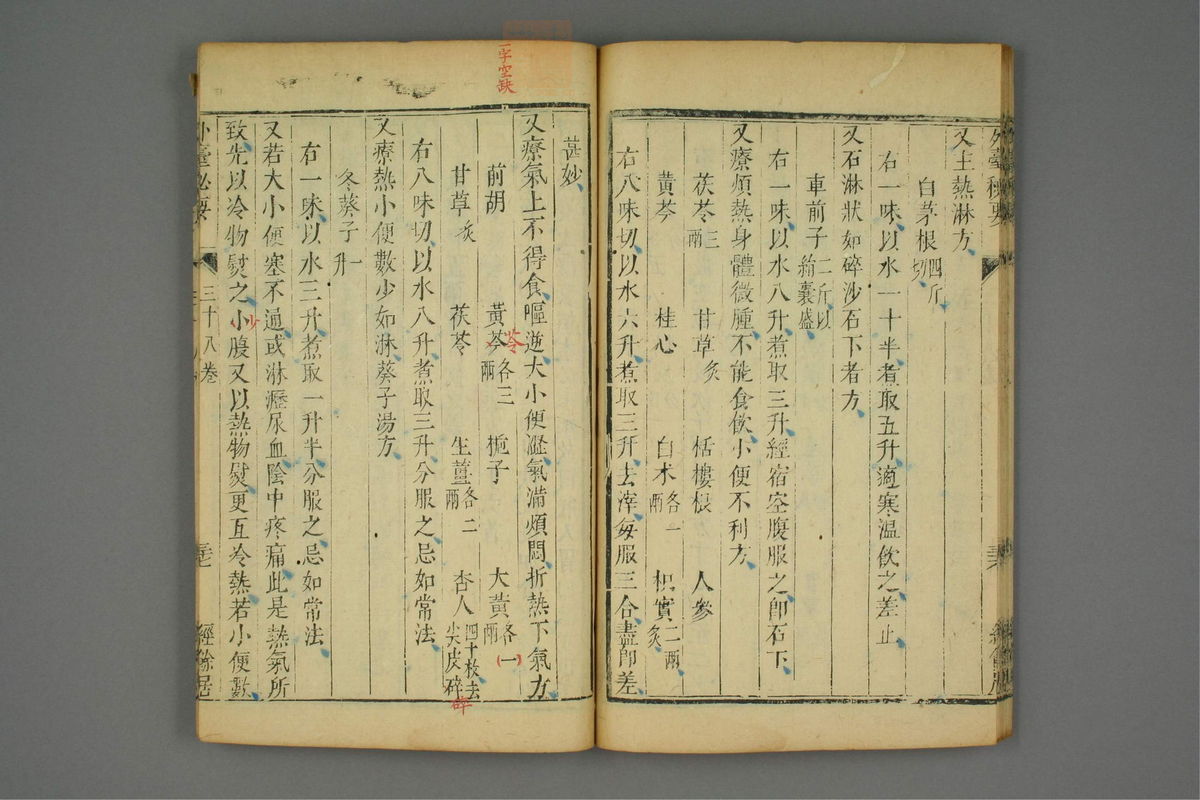 外臺秘要
又主熱淋方
白茅根四斤切
右一味以水一十半煮取五升適寒温飲之差止
又石淋狀如碎沙石下者方
車前子二斤以絹囊盛
右一味以水八升煮取三升經宿空腹服之卽石下
又療煩熱身體微腫不能食飲小便不利方
茯苓三兩 甘草炙 栝樓根 人參
黃芩 桂心 白术各一兩 枳實二兩炙
右八味切以水六升煮取三升去滓每服三合盡卽差
甚妙
一字空缺
又療氣上不得食嘔逆大小便澀氣滿煩悶折熱下氣方
前胡 黃芩各三兩 梔子 大黃各一兩
苓
(一)
甘草炙 茯苓 生薑各二兩 杏人四十枚去尖皮碎
碎
右八味切以水八升煮取三升分服之忌如常法
又療熱小便數少如淋葵子湯方
冬葵子一升
右一味以水三升煮取一升半分服之忌如常法
又若大小便塞不通或淋瀝尿血陰中疼痛此是熱氣所
致先以冷物熨之小腹又以熱物熨更互冷熱若小便數
少
外臺秘要 三十八卷 經餘居